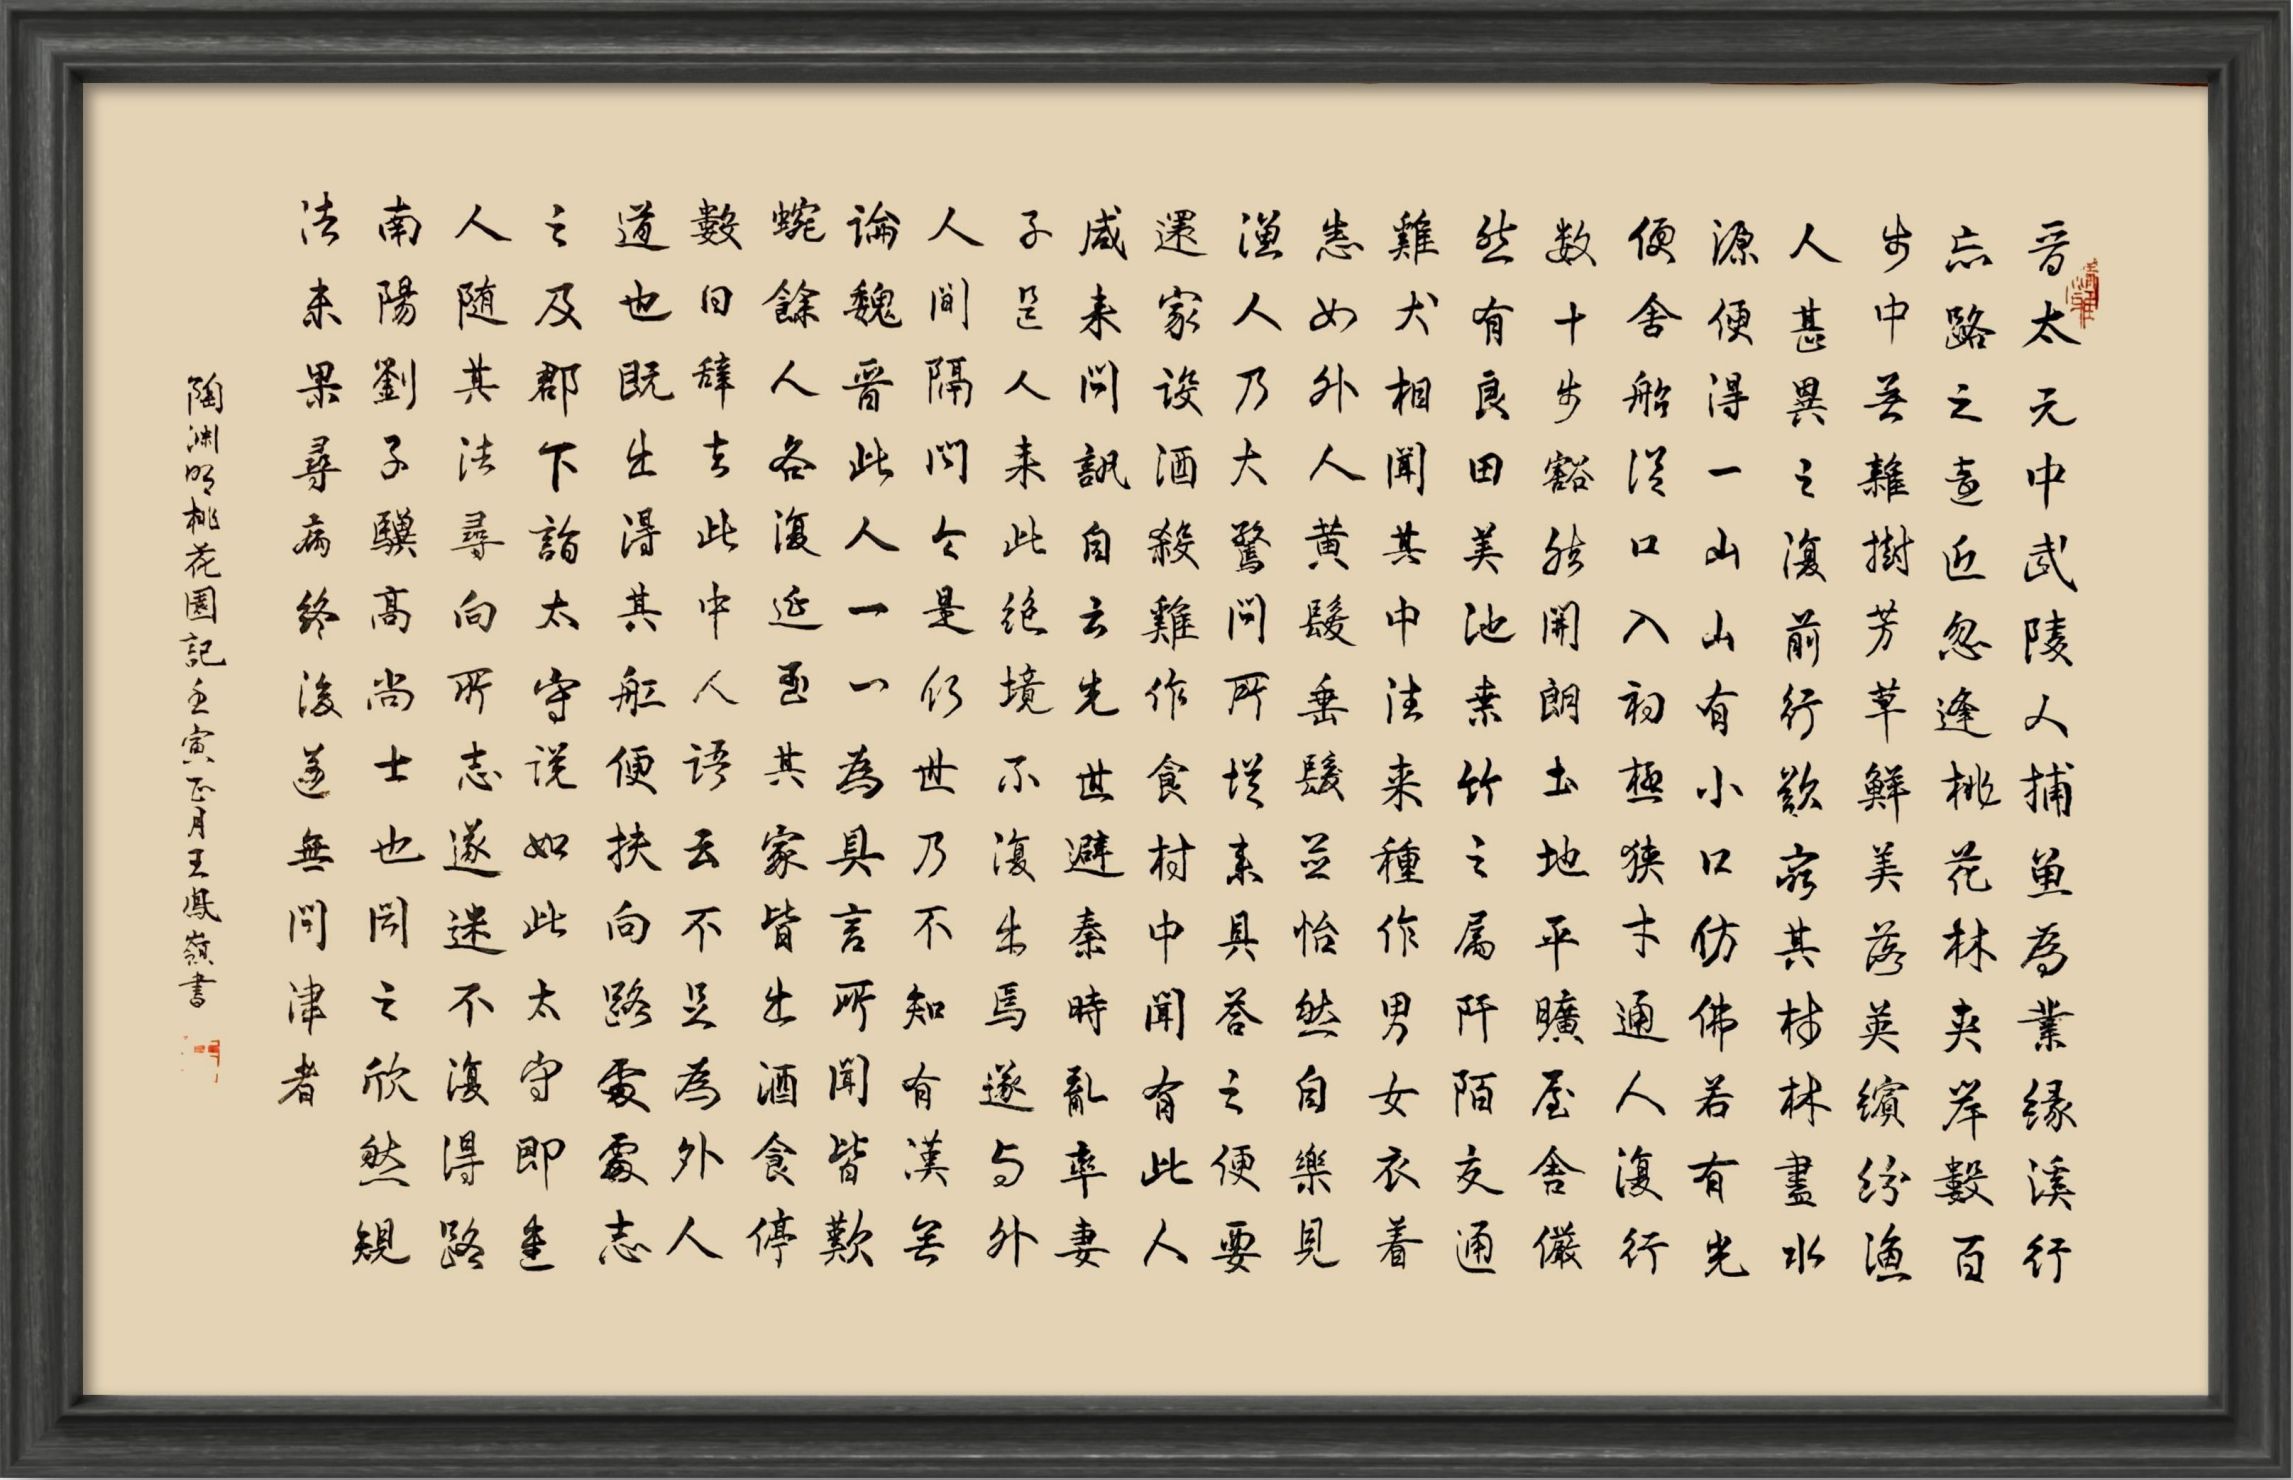 晋太元中武陵人捕鱼為業缘溪行
忘路之遠近忽逢桃花林夹岸數百
步中无雜樹芳草鮮美落英繽纷渔
人甚異之復前行欲窮其林林盡水
源便得一山山有小口仿佛若有光
便舍船從口入初極狭才通人復行
数十步豁然開朗土地平曠屋舍儼
然有良田美池桑竹之属阡陌交通
雞犬相聞其中往来種作男女衣着
悉如外人黄髮垂髮並怡然自樂見
渔人乃大驚問所從来具答之便要
還家設酒殺雞作食村中聞有此人
咸来問訊自云先世避秦時亂率妻
子邑人来此绝境不復出焉遂与外
人間隔問今是何世乃不知有漢无
論魏晋此人一一為具言所聞皆歎
惋餘人各復延至其家皆出酒食停
數日辞去此中人語云不足為外人
道也既出得其船便扶向路處處志
之及郡下詣太守说如此太守即遣
人随其往尋向所志遂迷不復得路
南陽劉子驥高尚士也聞之欣然規
往未果尋病终後遂無問津者
陶渊明桃花園記壬寅正月王鳳嶺書